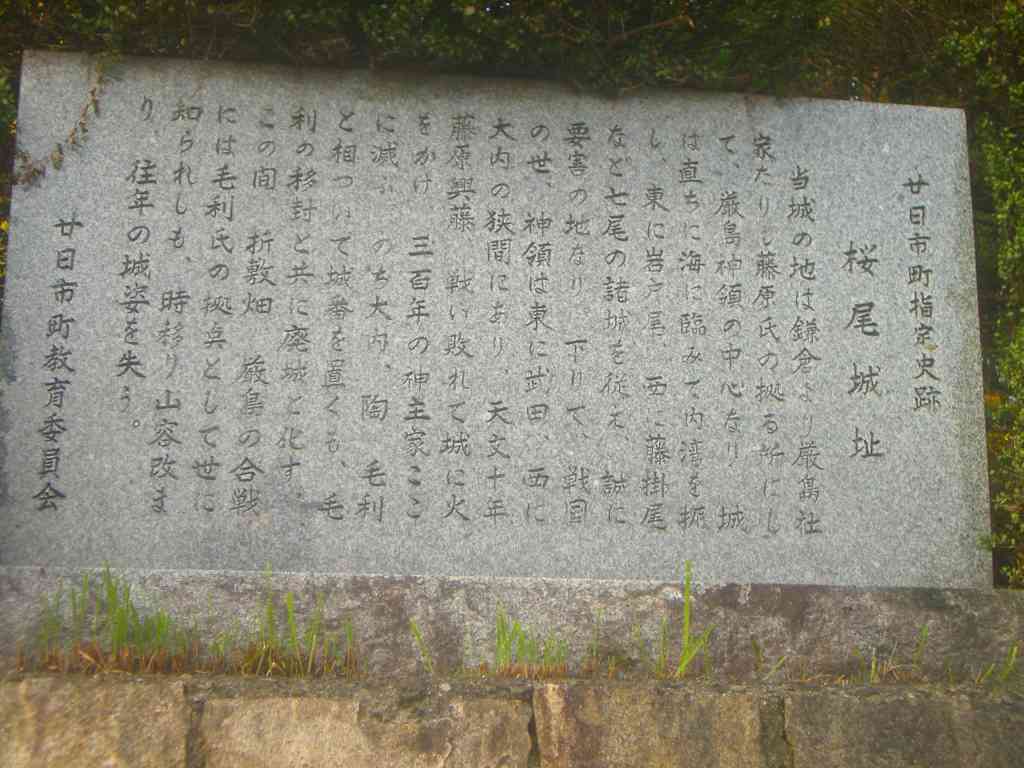 廿日市町指定史跡
桜尾城址
当城の地は鎌倉より厳島社
家たりし藤原氏の拠る所にし
て、厳島神領の中心なり 城
は直ちに海に臨みて内湾を扼
し、東に岩戸尾、西に藤掛尾
など七尾の諸城を従え、誠に
要害の地なり。下りて、戦国
の世、神領は東に武田、西に
大内の狭間にあり、天文十年
藤原興藤、戦い敗れて城に火
をかけ 三百年の神主家ここ
に滅ぶ のち大内、陶 毛利
と相ついで城番を置くも、毛
利の移封と共に廃城と化す。
この間 折敷畑 厳島の合戦
には毛利氏の拠点として世に
知られしも、時移り山容改ま
り、往年の城姿を失う。
廿日市町教育委員会